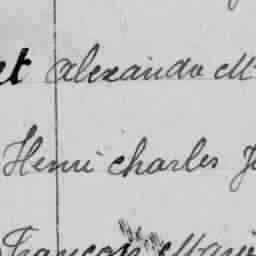 et Alexandre M
Henri Charles J
François Marie